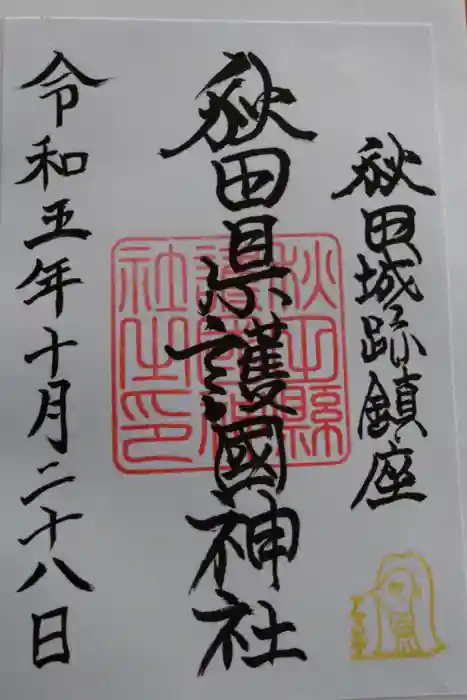 秋田城跡鎮座
秋田県護國神社
秋田縣護國神社之印
令和五年十月二十八日